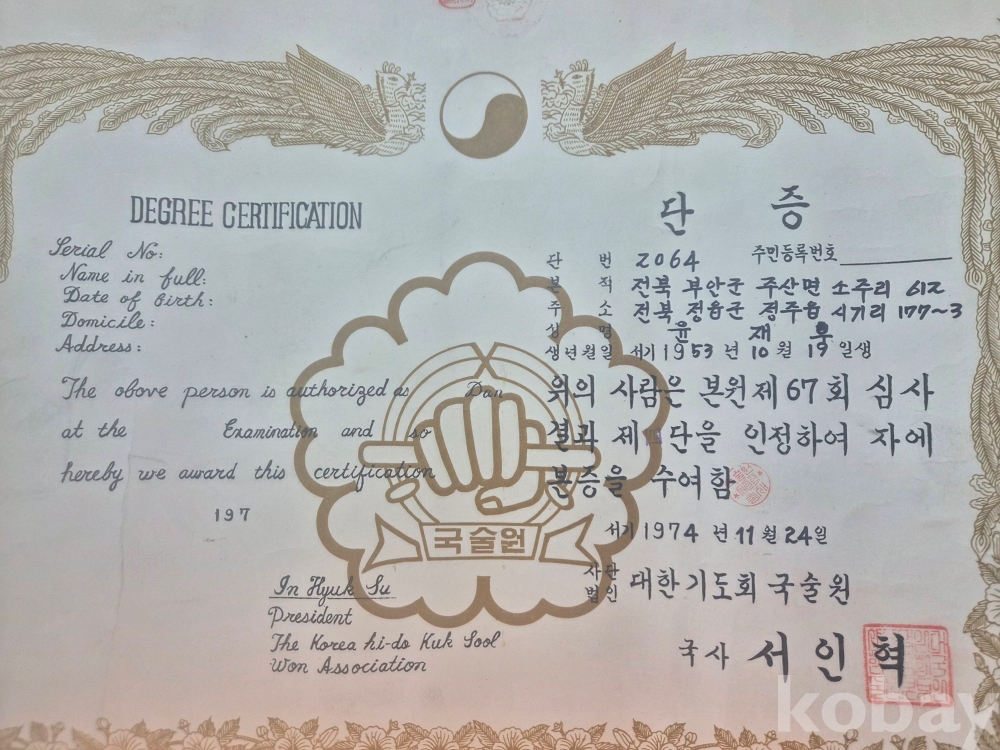 DEGREE CERTIFICATION
Serial No:
Name in full:
Date of Birth:
Domicile:
Address:
The obove person is authorized as Dan
at the Examination and so
hereby we award this certification
197
In Hyuk Su
President
The Korea hi-do Kuk Sool
Won Association
단 증
단 번 2064 주민등록번호
본 적 전북 부안군 주산면 소주리 612
주 소 전북 정읍군 정주읍 시기리 177~3
성 명 윤 재
생년월일 서기 1953 년 10 월 19 일생
위의 사람은 본원 제 67 회 심사
결과 제 단을 인정하여 자에
본증을 수여함
서기 1974 년 11 월 24 일
사단
법인 대한기도회 국술원
국사 서인혁
국술원
kobay